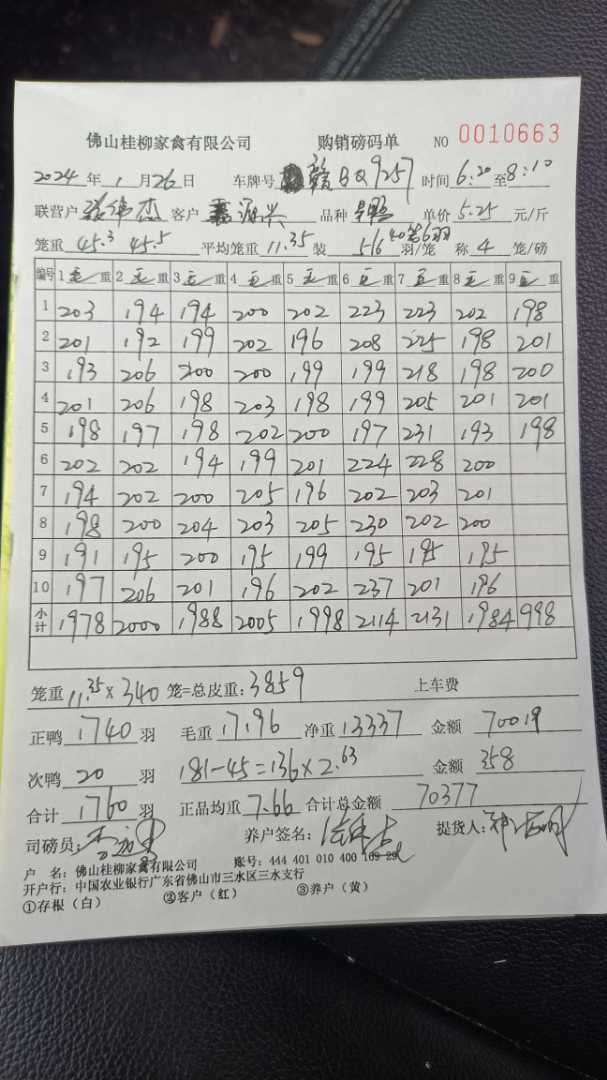 佛山桂柳家禽有限公司 购销磅码单 NO 0010663
2024年1月26日 车牌号 赣BQ9257 时间6:20至8:10
联营户 杰 客户 源兴 品种 单价5.25元/斤
笼重45.3 45.5 平均笼重11.35装 5/6 40笼6羽 羽/笼 称4笼/磅
编号 1毛重 2毛重 3毛重 4毛重 5毛重 6毛重 7毛重 8毛重 9毛重
1 203 194 194 200 202 223 223 202 198
2 201 192 199 202 196 208 225 198 201
3 193 206 200 200 199 199 218 198 200
4 201 206 198 203 198 199 205 201 201
5 198 197 198 202 200 197 231 193 198
6 202 202 194 199 201 224 228 200
7 194 202 200 205 196 202 203 201
8 198 200 204 203 205 230 202 200
9 191 195 200 195 199 195 195 195
10 197 206 201 196 202 237 201 196
小计 1978 2000 1988 2005 1998 2114 2131 1984 998
笼重11.35×340笼=总皮重:3859 上车费
正鸭1740羽 毛重17196 净重13337 金额70019
次鸭20羽 181-45=136×2.63 金额358
合计1760羽 正品均重7.66 合计总金额70377
司磅员: 养户签名: 提货人:
户 名:佛山桂柳家禽有限公司 账号:444 401 010 400
开户行:中国农业银行广东省佛山市三水区三水支行
①存根(白) ②客户(红) ③养户(黄)